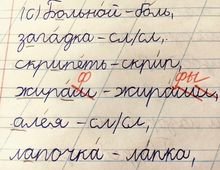 (с) Больной - боль,
западка - сл/сл,
скрипеть - скрип,
ф фы
жираш - жирашы,
алея - сл/сл,
лапочка - лапка,